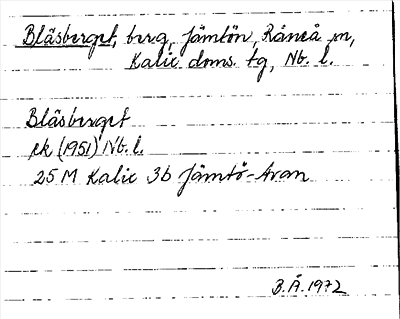 Blåsberget, berg, Jämtön, Råneå sn,
Kalix doms. tg, Nb. l.
Blåsberget
ek (1951) Nb. l.
25 M Kalix 3b Jämtö-Avan
B.Å. 1972